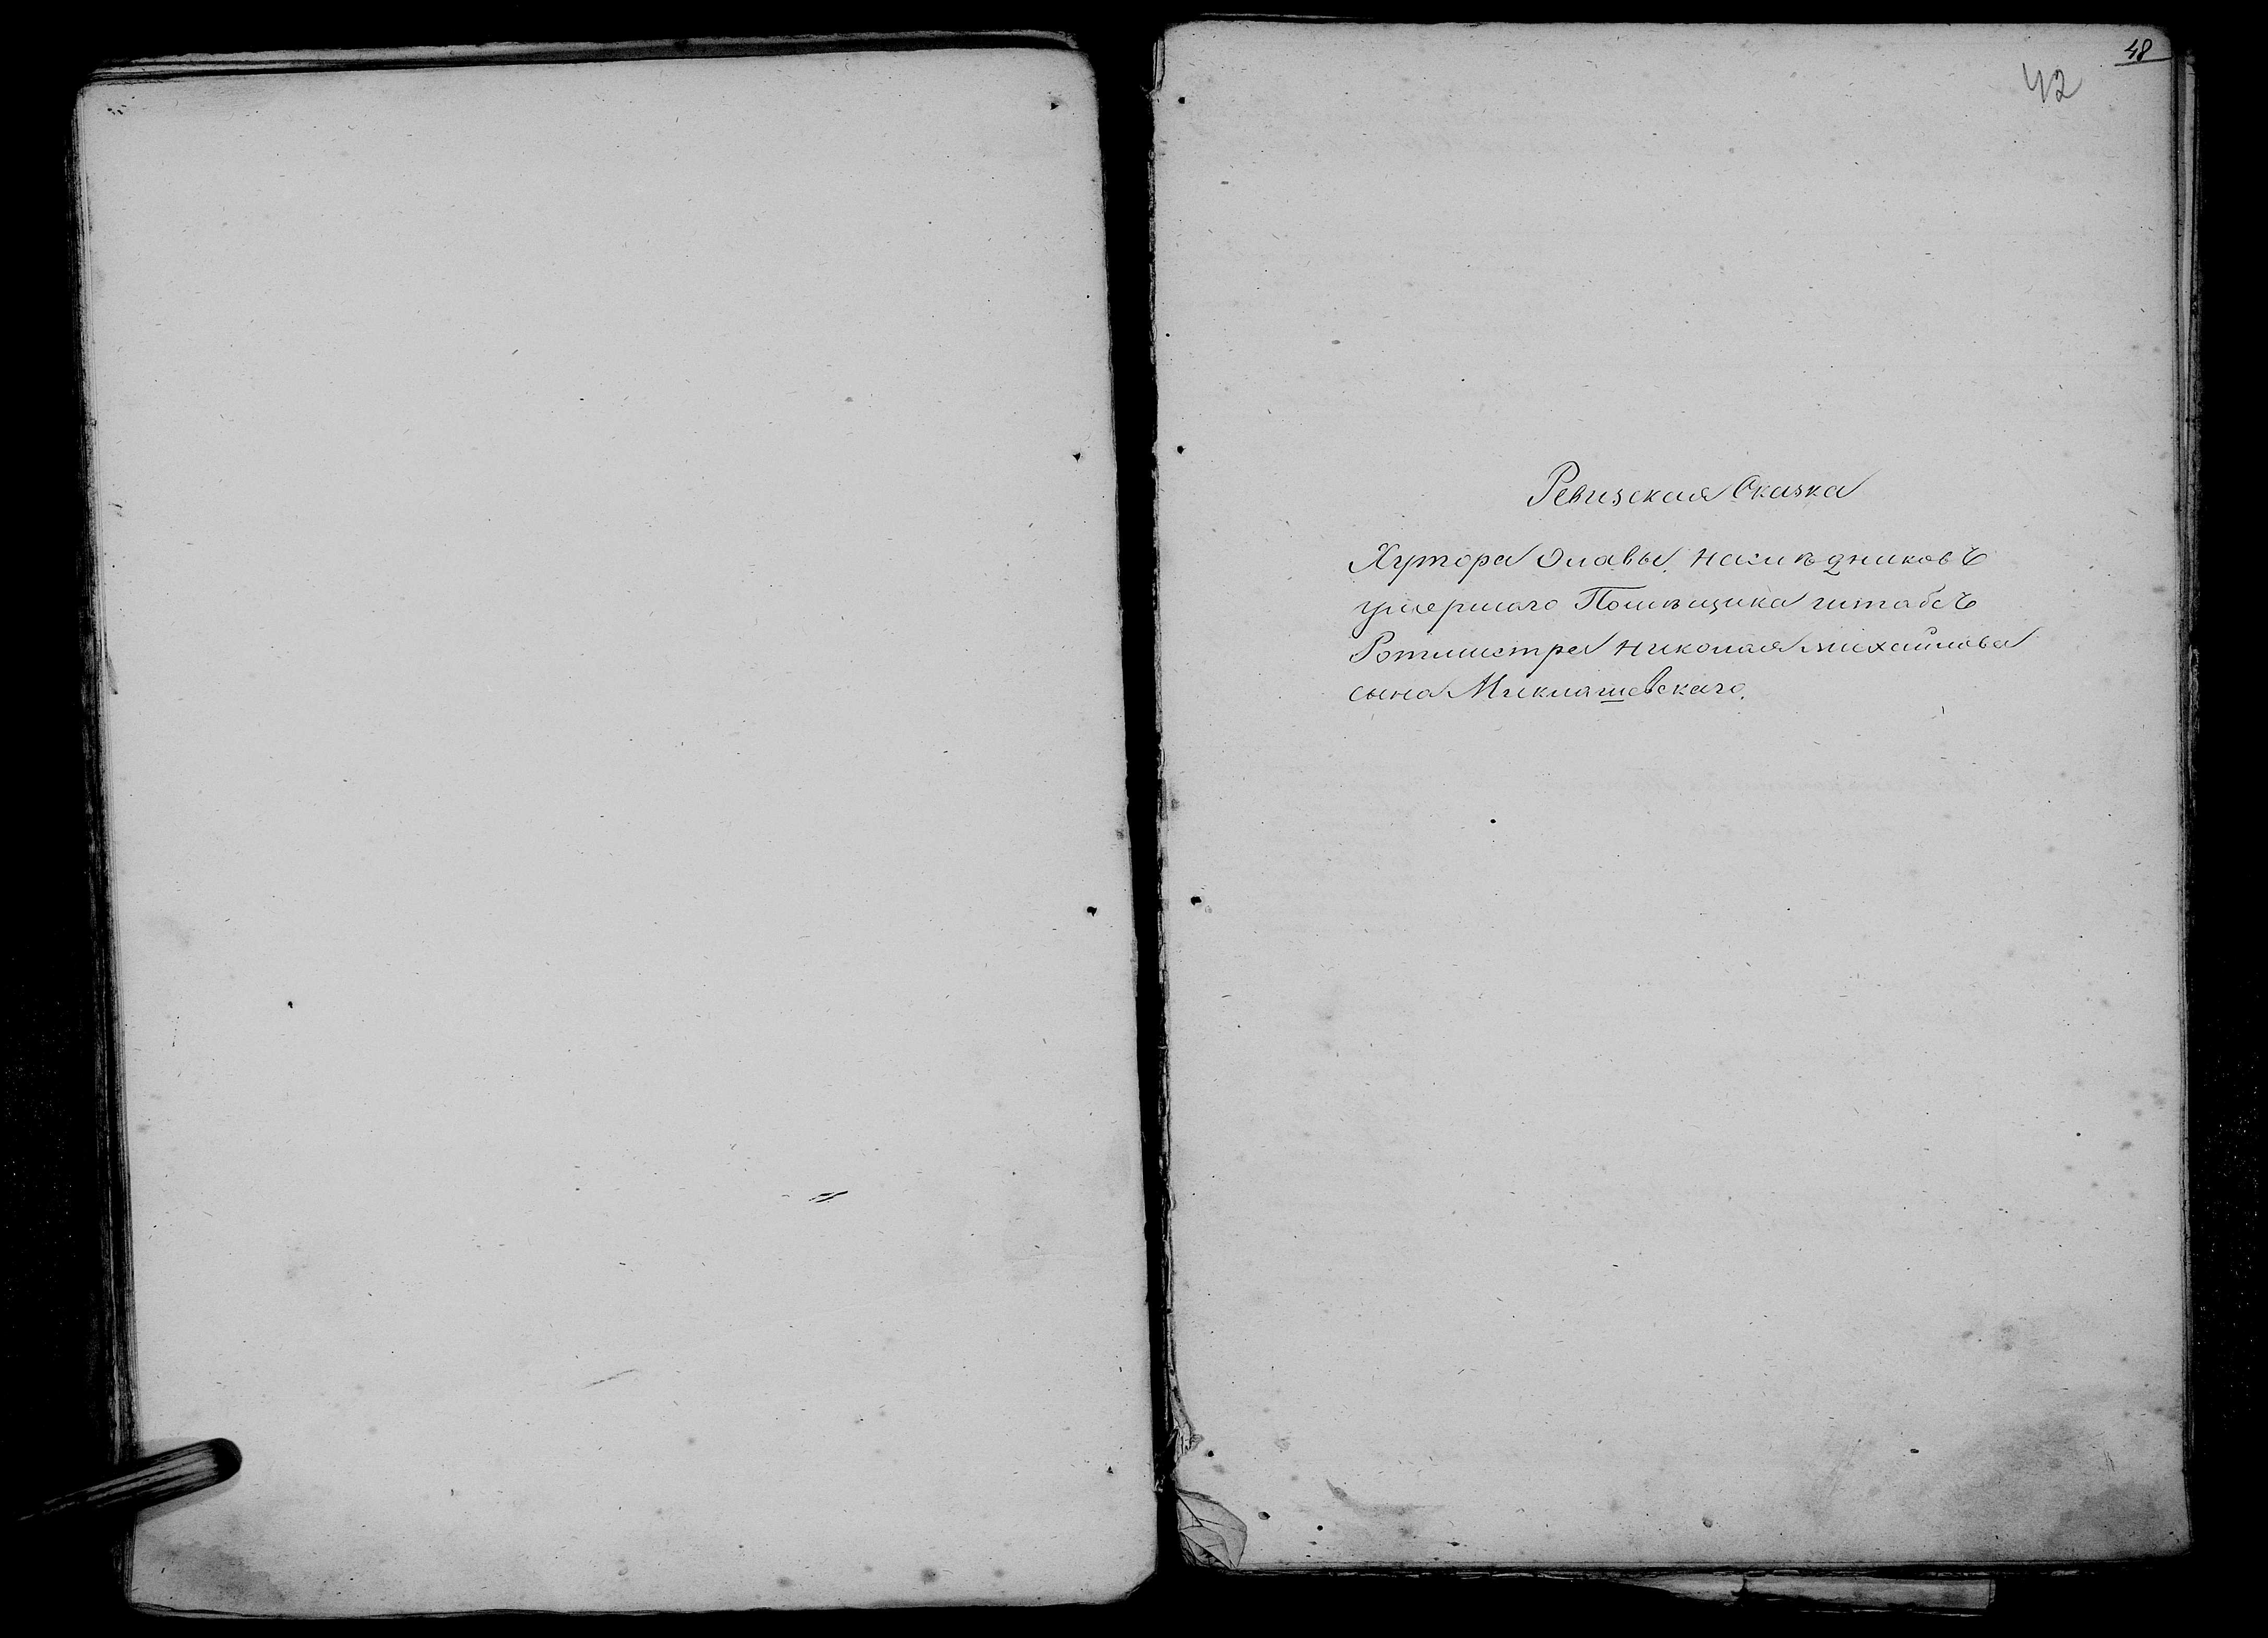 48
42
Ревизская Сказка
Хутора Славы, наслѣдниковъ
умершаго Помѣщика штабсъ
Ротмистра Николая Михайлова
сына Миклашевскаго.